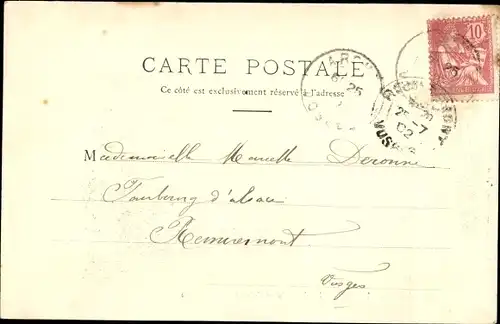 10
CARTE POSTALE
Ce côté est exclusivement réservé à l'adresse
25 -7
02
Mademoiselle Marcelle Deronne
Faubourg d'alsace
Remiremont
Vosges